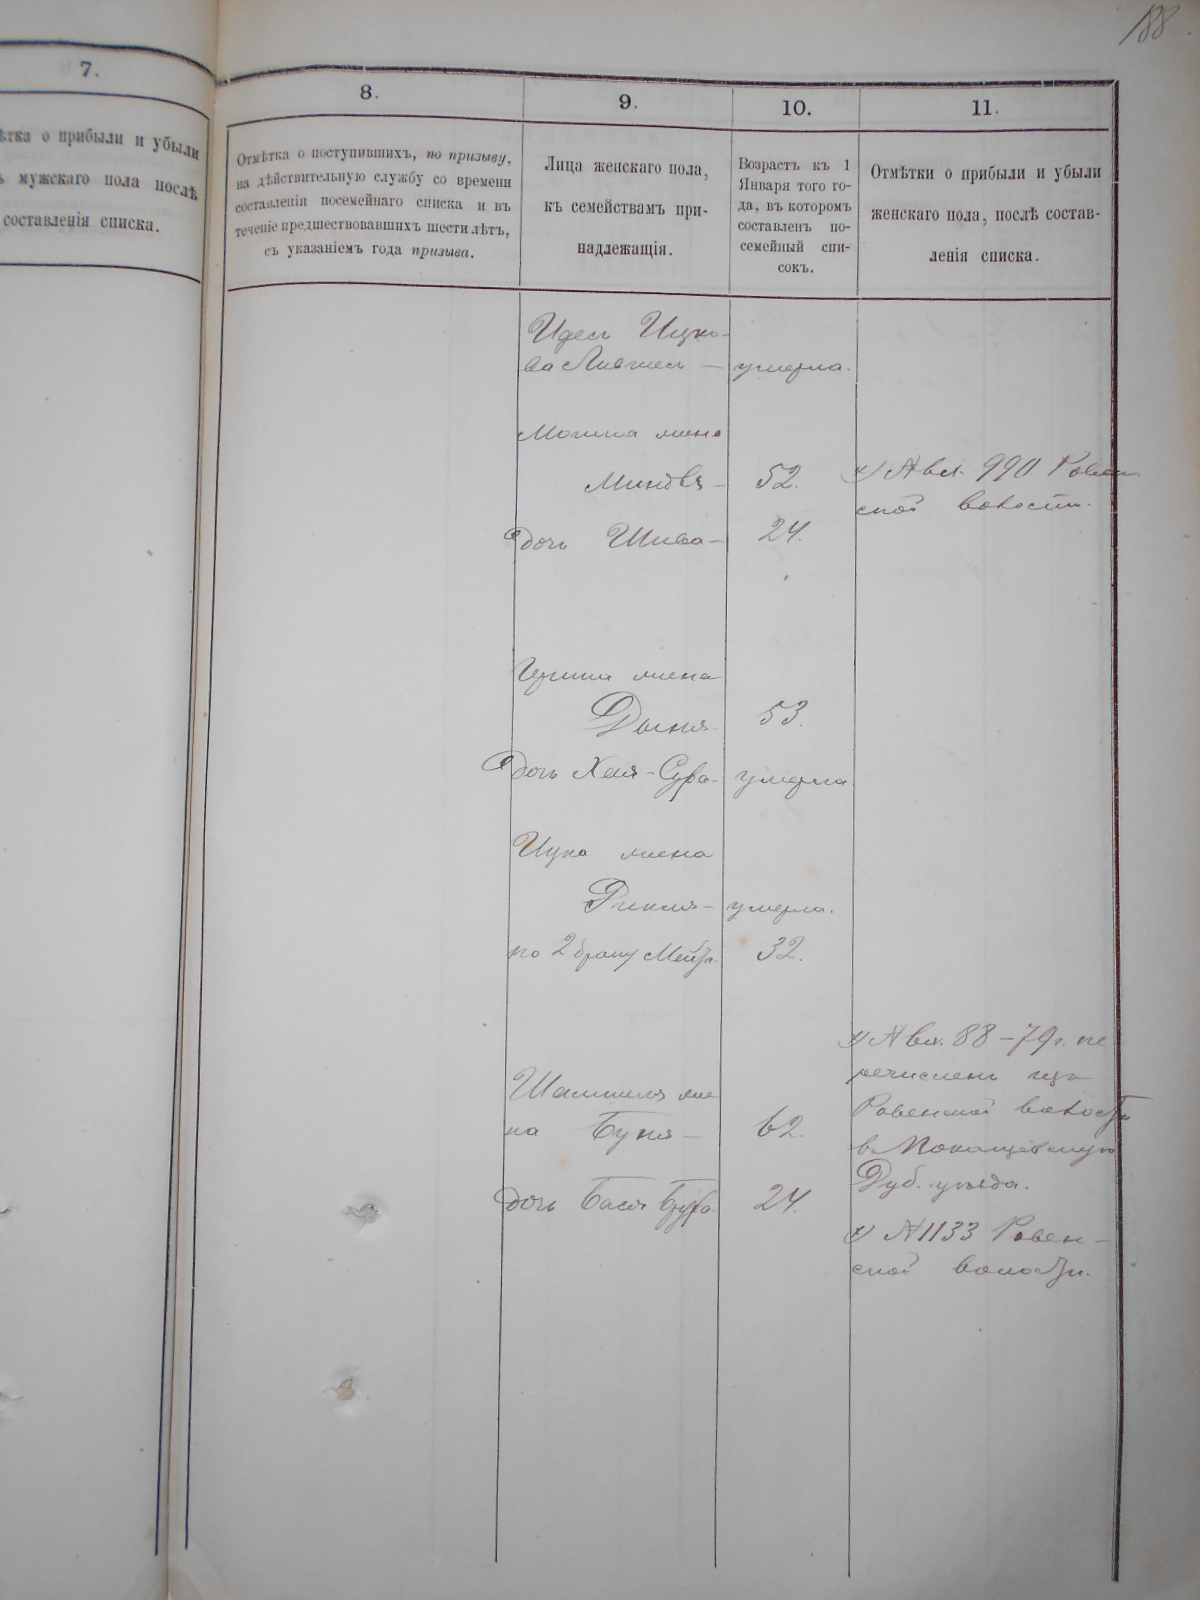 188
7.
8.
9.
10.
11.
ѣтка о прибыли и убыли
ъ мужскаго пола послѣ
составленія списка.
Отмѣтка о поступившихъ, по призыву,
на дѣйствительную службу со времени
составленія посемейнаго списка и въ
теченіе предшествовавшихъ шести лѣтъ,
съ указаніемъ года призыва.
Лица женскаго пола,
къ семействамъ при-
надлежащія.
Возрастъ къ 1
Января того го-
да, въ которомъ
составленъ по-
семейный спи-
сокъ.
Отмѣтки о прибыли и убыли
женскаго пола, послѣ состав-
ленія списка.
Ицко-
ва — умерла.
жена
52. x) № 990 Ровен
ской волости.
дочь Шива — 24.
жена
Дыня 53.
дочь Хая-Сура умерла
Ицка жена
Рикля — умерла.
по 2 браку 32.
x) 88–79 г. пе
речислен из
Шамшеля же Ровенской волости
на Буня — 62.
Дуб. уѣзда.
дочь Бася 24.
x) №1133 Ровен-
ской волости.